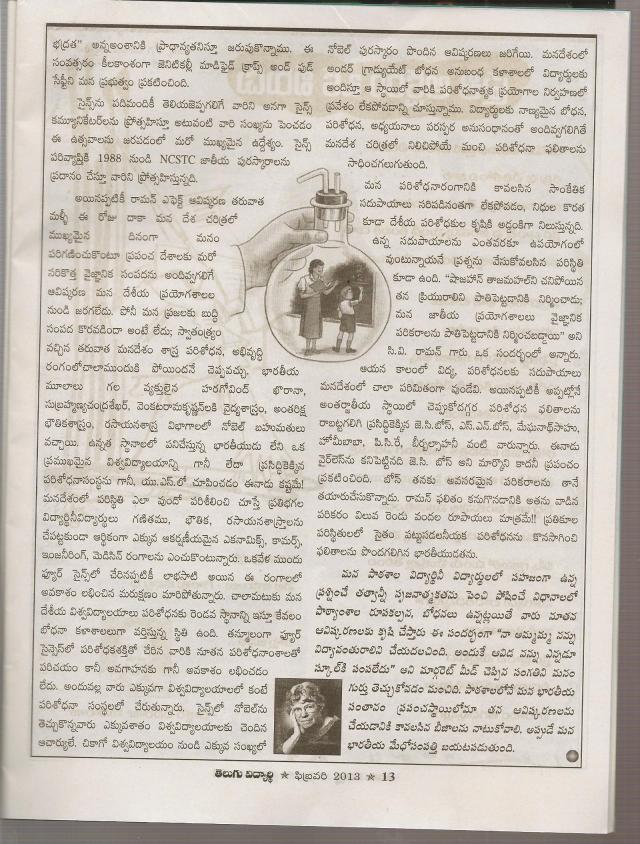 భద్రత" అన్నఅంశానికి ప్రాధాన్యతనిస్తూ జరుపుకొన్నాము. ఈ
సంవత్సరం కీలకాంశంగా జెనిటికల్లీ మాడిఫైడ్ క్రాప్స్ అండ్ ఫుడ్
సేఫ్టీని మన ప్రభుత్వం ప్రకటించింది.
సైన్స్‌ను పదిమందికీ తెలియజెప్పగలిగే వారిని అనగా సైన్స్
కమ్యూనికేటర్‌లను ప్రోత్సహిస్తూ అటువంటి వారి సంఖ్యను పెంచడం
ఈ ఉత్సవాలను జరపడంలో మరో ముఖ్యమైన ఉద్దేశ్యం. సైన్స్
పరివ్యాప్తికి 1988 నుండి NCSTC జాతీయ పురస్కారాలను
ప్రదానం చేస్తూ వారిని ప్రోత్సహిస్తున్నది.
అయినప్పటికీ రామన్ ఎఫెక్ట్ ఆవిష్కరణ తరువాత
మళ్ళీ ఈ రోజు దాకా మన దేశ చరిత్రలో
ముఖ్యమైన దినంగా మనం
పరిగణించుకొంటూ ప్రపంచ దేశాలకు మరో
సరికొత్త వైజ్ఞానిక సంపదను అందివ్వగలిగే
ఆవిష్కరణ మన దేశీయ ప్రయోగశాలల
నుండి జరగలేదు. పోనీ మన ప్రజలకు బుద్ధి
సంపద కొరవడిందా అంటే లేదు; స్వాతంత్ర్యం
వచ్చిన తరువాత మనదేశం శాస్త్ర పరిశోధన, అభివృద్ధి
రంగంలోచాలాముందుకి పోయిందనే చెప్పవచ్చు. భారతీయ
మూలాలు గల వ్యక్తులైన హరగోవింద్ ఖొరానా,
సుబ్రహ్మణ్యచంద్రశేఖర్, వెంకటరామకృష్ణన్‌లకి వైద్యశాస్త్రం, అంతరిక్ష
భౌతికశాస్త్రం, రసాయనశాస్త్ర విభాగాలలో నోబెల్ బహుమతులు
వచ్చాయి. ఉన్నత స్థానాలలో పనిచేస్తున్న భారతీయుడు లేని ఒక
ప్రముఖమైన విశ్వవిద్యాలయాన్ని గానీ లేదా ప్రసిద్ధికెక్కిన
పరిశోధనాసంస్థను గానీ, యు.ఎస్.లో చూపించడం ఈనాడు కష్టమే!
మనదేశంలో పరిస్థితి ఎలా వుందో పరిశీలించి చూస్తే ప్రతిభగల
విద్యార్థినీవిద్యార్థులు గణితము, భౌతిక, రసాయనశాస్త్రాలను
చేపట్టకుండా ఆర్థికంగా ఎక్కువ ఆకర్షణీయమైన ఎకనామిక్స్, కామర్స్,
ఇంజనీరింగ్, మెడిసిన్ రంగాలను ఎంచుకొంటున్నారు. ఒకవేళ ముందు
ప్యూర్ సైన్స్‌లో చేరినప్పటికీ లాభసాటి అయిన ఈ రంగాలలో
అవకాశం లభించిన మరుక్షణం మారిపోతున్నారు. చాలామటుకు మన
దేశీయ విశ్వవిద్యాలయాలు పరిశోధనకు రెండవ స్థానాన్ని ఇస్తూ కేవలం
బోధనా కళాశాలలుగా వర్తిస్తున్న స్థితి ఉంది. తన్మూలంగా ప్యూర్
సైన్సెస్‌లో పరిశోధకశక్తితో చేరిన వారికి నూతన పరిశోధనాంశాలతో
పరిచయం కానీ అవగాహనకు గానీ అవకాశం లభించడం
లేదు. అందువల్ల వారు ఎక్కువగా విశ్వవిద్యాలయాల కంటే
పరిశోధనా సంస్థలలో చేరుతున్నారు. సైన్స్‌లో నోబెల్‌ను
తెచ్చుకొన్నవారు ఎక్కువశాతం విశ్వవిద్యాలయాలకు చెందిన
ఆచార్యులే. చికాగో విశ్వవిద్యాలయం నుండి ఎక్కువ సంఖ్యలో
నోబెల్ పురస్కారం పొందిన ఆవిష్కరణలు జరిగేయి. మనదేశంలో
అండర్ గ్రాడ్యుయేట్ బోధన అనుబంధ కళాశాలలలో విద్యార్థులకు
అందిస్తూ ఆ స్థాయిలో వారికి పరిశోధనాత్మక ప్రయోగాల నిర్వహణలో
ప్రవేశం లేకపోవడాన్ని చూస్తున్నాము. విద్యార్థులకు నాణ్యమైన బోధన,
పరిశోధన, అధ్యయనాలు పరస్పర అనుసంధానంతో అందివ్వగలిగితే
మనదేశ చరిత్రలో నిలిచిపోయే మంచి పరిశోధనా ఫలితాలను
సాధించగలుగుతుంది.
మన పరిశోధనారంగానికి కావలసిన సాంకేతిక
సదుపాయాలు సరిపడినంతగా లేకపోవడం, నిధుల కొరత
కూడా దేశీయ పరిశోధకుల కృషికి అడ్డంకిగా నిలుస్తున్నది.
ఉన్న సదుపాయాలను ఎంతవరకూ ఉపయోగంలో
వుంటున్నాయనే ప్రశ్నను వేసుకోవలసిన పరిస్థితి
కూడా ఉంది. "షాజహాన్ తాజమహల్‌ని చనిపోయిన
తన ప్రియురాలిని పాతిపెట్టడానికి నిర్మించాడు;
మన జాతీయ ప్రయోగశాలలు వైజ్ఞానిక
పరికరాలను పాతిపెట్టడానికి నిర్మించబడ్డాయి" అని
సి.వి. రామన్ గారు ఒక సందర్భంలో అన్నారు.
ఆయన కాలంలో విద్య, పరిశోధనలకు సదుపాయాలు
మనదేశంలో చాలా పరిమితంగా వుండేవి. అయినప్పటికీ అప్పట్లోనే
అంతర్జాతీయ స్థాయిలో చెప్పుకోదగ్గర పరిశోధన ఫలితాలను
రాబట్టగలిగి ప్రసిద్ధికెక్కిన జె.సి.బోస్, ఎస్.ఎన్.బోస్, మేఘనాథ్‌సాహు,
హోమీబాబా, పి.సి.రే, బీర్బల్సాహనీ వంటి వారున్నారు. ఈనాడు
వైర్‌లెస్‌ను కనిపెట్టినది జె.సి. బోస్ అని మార్కొని కాదనీ ప్రపంచం
ప్రకటించింది. బోస్ తనకు అవసరమైన పరికరాలను తానే
తయారుచేసుకొన్నాడు. రామన్ ఫలితం కనుగొనడానికి అతను వాడిన
పరికరం విలువ రెండు వందల రూపాయలు మాత్రమే!! ప్రతికూల
పరిస్థితులలో సైతం పట్టుసడలనీయక పరిశోధనను కొనసాగించి
ఫలితాలను పొందగలిగిన భారతీయుడతను.
మన పాఠశాల విద్యార్థినీ విద్యార్థులలో సహజంగా ఉన్న
ప్రశ్నించే తత్వాన్నీ సృజనాత్మకతను పెంచి పోషించే విధానాలలో
పాఠ్యాంశాల రూపకల్పన, బోధనలు ఉన్నట్లయితే వారు నూతన
ఆవిష్కరణలకు కృషి చేస్తారు ఈ సందర్భంగా "నా అమ్మమ్మ నన్ను
విద్యావంతురాలిని చేయదలచింది. అందుకే ఆవిడ నన్ను ఎన్నడూ
స్కూల్‌కి పంపలేదు" అని మార్గరెట్ మీడ్ చెప్పిన సంగతిని మనం
గుర్తు తెచ్చుకోవడం మంచిది. పాఠశాలలోనే మన భారతీయ
సంతానం ప్రపంచస్థాయిలోనూ తన ఆవిష్కరణలను
చేయడానికి కావలసిన బీజాలను నాటుకోవాలి. అప్పుడే మన
భారతీయ మేధోసంపత్తి బయటపడుతుంది.
తెలుగు విద్యార్థి ★ ఫిబ్రవరి 2013 ★ 13